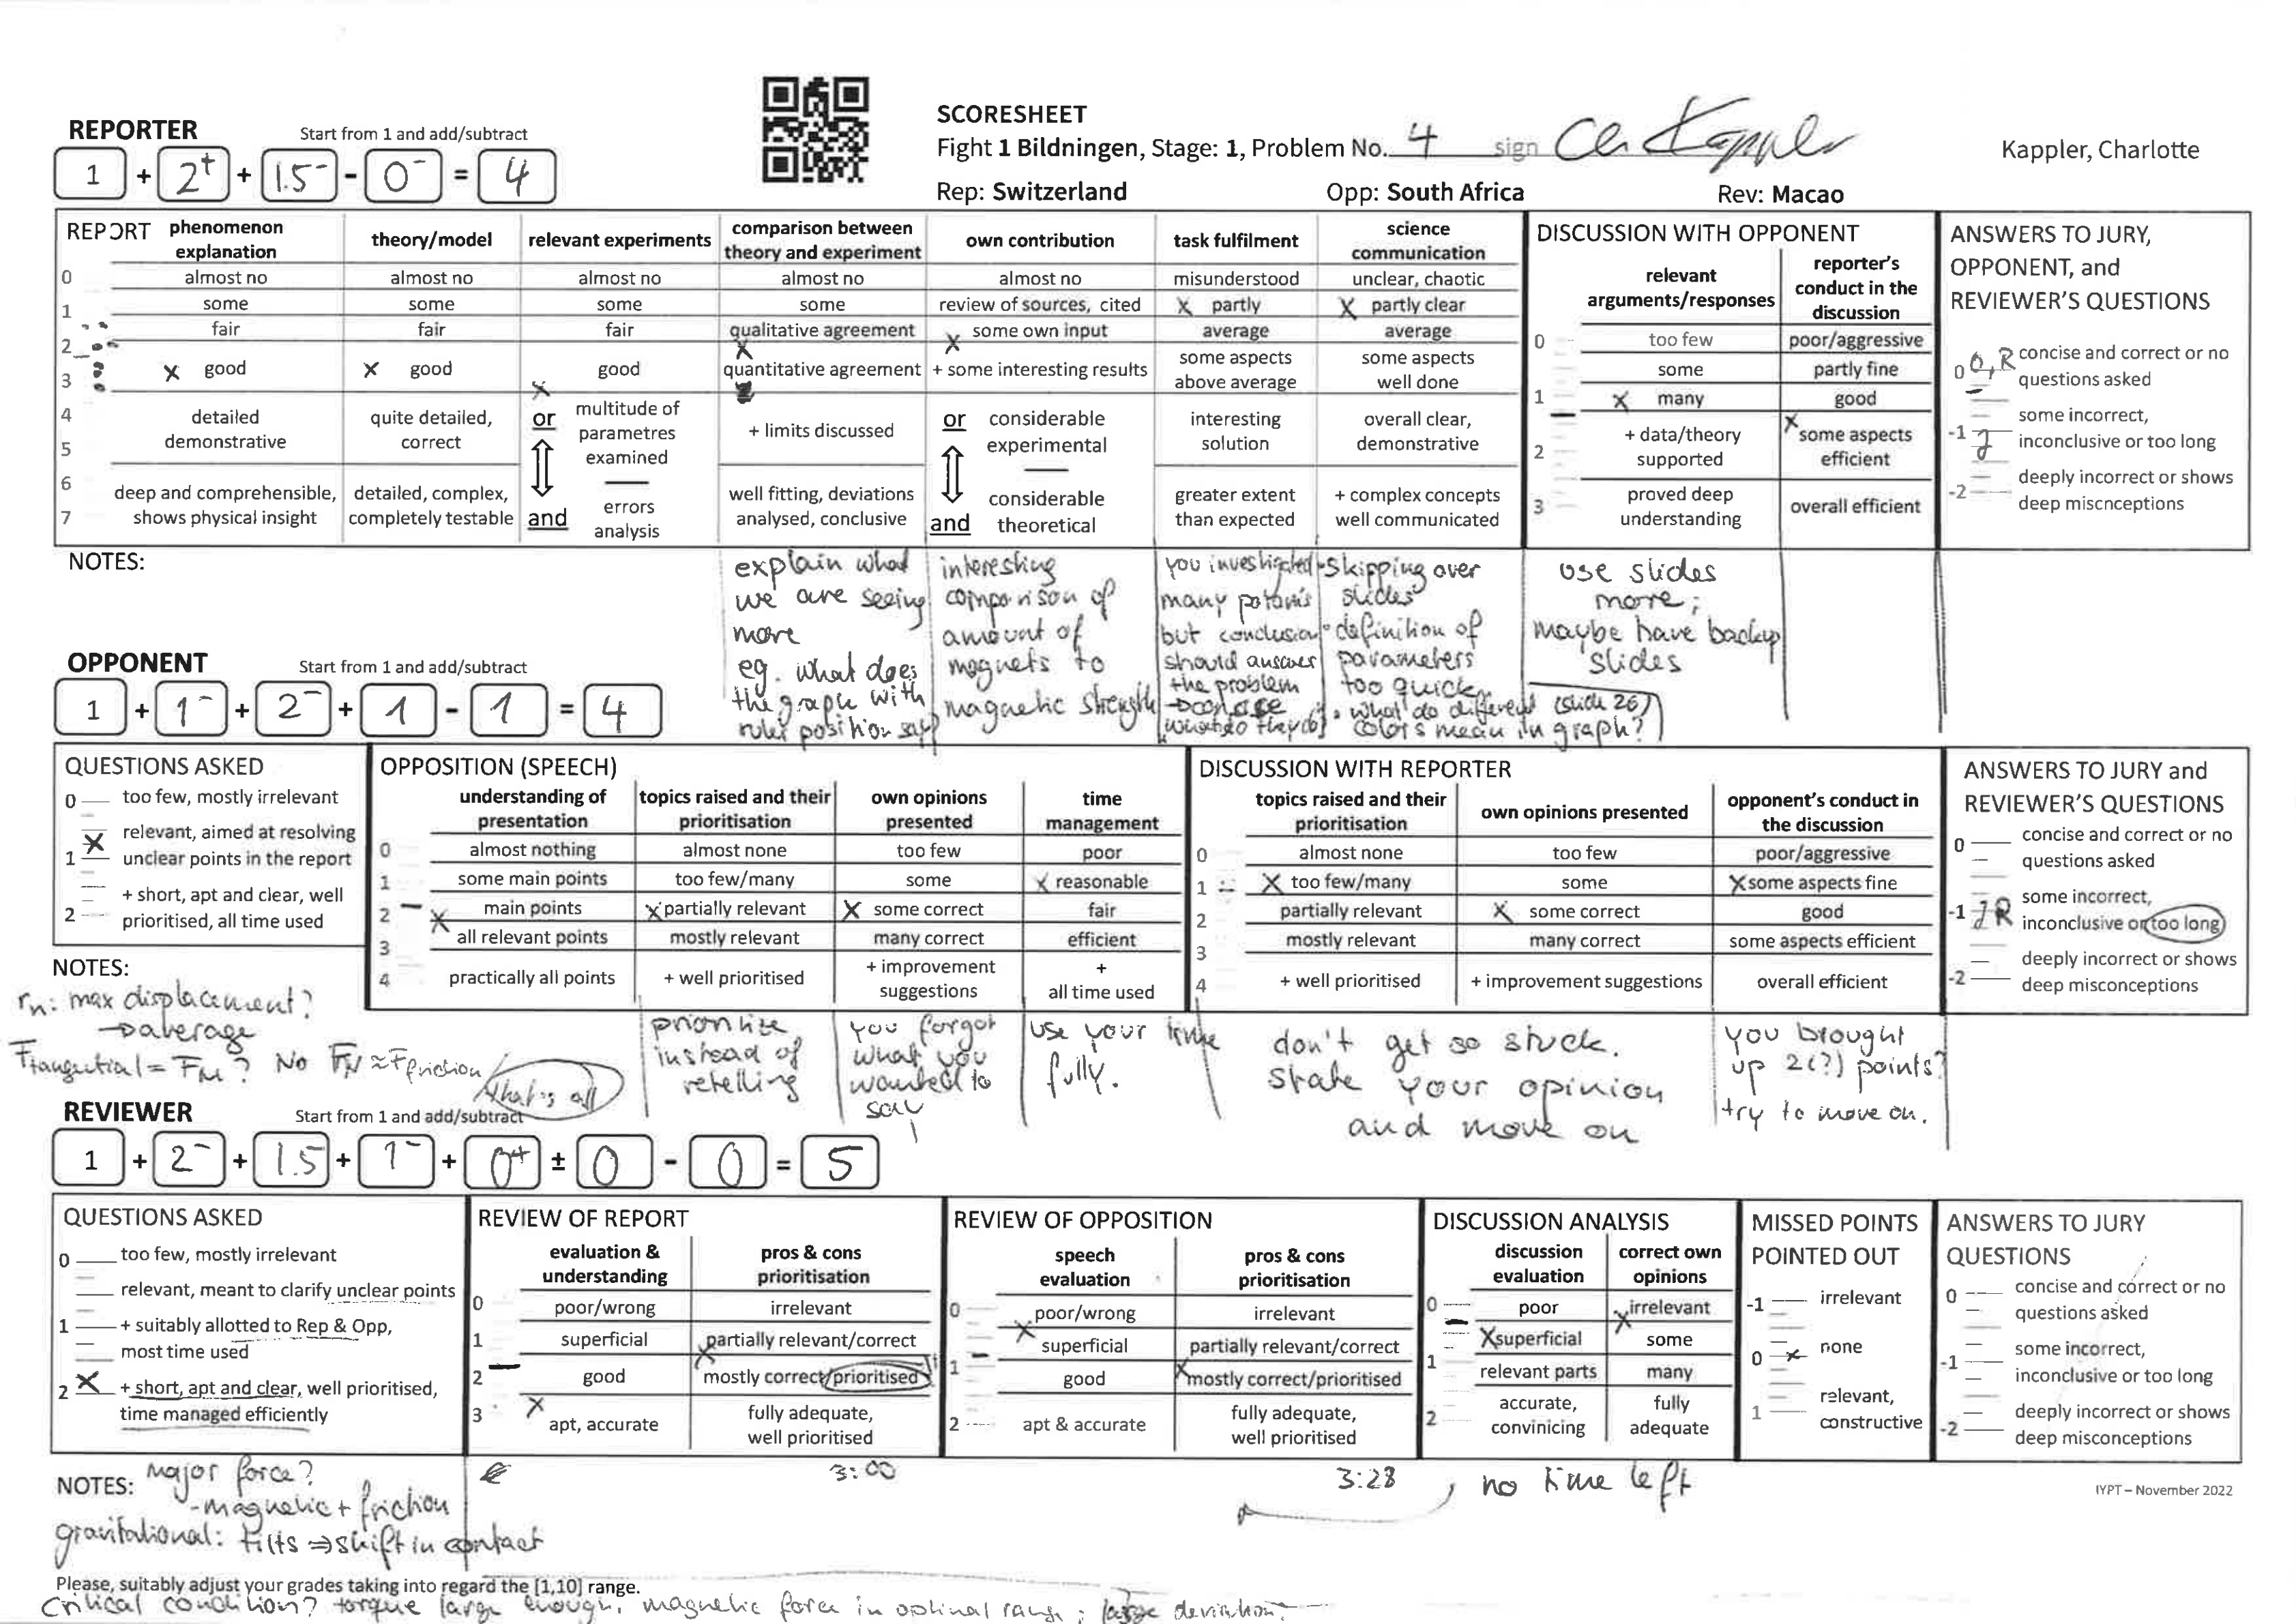 SCORESHEET
REPORTER Start from 1 and add/subtract
Fight 1 Bildningen, Stage: 1, Problem No. 4 sign Kappler, Charlotte
1 + 2+ + 1.5- - 0- = 4
Rep: Switzerland Opp: South Africa Rev: Macao
REPORT phenomenon explanation theory/model relevant experiments comparison between theory and experiment own contribution task fulfilment science communication
0 almost no almost no almost no almost no almost no misunderstood unclear, chaotic
1 some some some some review of sources, cited X partly X partly clear
2 fair fair fair qualitative agreement X some own input average average
3 X good X good X good X quantitative agreement + some interesting results some aspects above average some aspects well done
4 5 detailed demonstrative quite detailed, correct or multitude of parametres examined + limits discussed or considerable experimental interesting solution overall clear, demonstrative
6 7 deep and comprehensible, shows physical insight detailed, complex, completely testable and errors analysis well fitting, deviations analysed, conclusive and considerable theoretical greater extent than expected + complex concepts well communicated
DISCUSSION WITH OPPONENT
relevant arguments/responses reporter's conduct in the discussion
0 too few poor/aggressive
some partly fine
1 X many good
2 + data/theory supported X some aspects efficient
3 proved deep understanding overall efficient
ANSWERS TO JURY, OPPONENT, and REVIEWER'S QUESTIONS
0 O, R concise and correct or no questions asked
-1 J some incorrect, inconclusive or too long
-2 deeply incorrect or shows deep miscnceptions
NOTES:
explain what
we are seeing
more
eg. what does
the graph with
ruler position say?
interesting
comparison of
amount of
magnets to
magnetic strength
you investigated
many
but conclusion
should answer
the problem
what do they do
- skipping over
slides
- definition of
parameters
too quick
what do different (slide 26)
colors mean in graph?
use slides
more;
maybe have backup
slides
OPPONENT Start from 1 and add/subtract
1 + 1- + 2- + 1 - 1 = 4
QUESTIONS ASKED
0 too few, mostly irrelevant
X relevant, aimed at resolving
1 unclear points in the report
+ short, apt and clear, well
2 prioritised, all time used
OPPOSITION (SPEECH)
understanding of presentation topics raised and their prioritisation own opinions presented time management
0 almost nothing almost none too few poor
1 some main points too few/many some X reasonable
2 main points X partially relevant X some correct fair
3 X all relevant points mostly relevant many correct efficient
4 practically all points + well prioritised + improvement suggestions + all time used
DISCUSSION WITH REPORTER
topics raised and their prioritisation own opinions presented opponent's conduct in the discussion
0 almost none too few poor/aggressive
1 X too few/many some X some aspects fine
2 partially relevant X some correct good
3 mostly relevant many correct some aspects efficient
4 + well prioritised + improvement suggestions overall efficient
ANSWERS TO JURY and REVIEWER'S QUESTIONS
0 concise and correct or no questions asked
-1 J R some incorrect, inconclusive or too long
-2 deeply incorrect or shows deep misconceptions
NOTES:
rn: max displacement?
→ average
Ftangential = FM? No FN ≈ Ffriction
that's all
prioritize
instead of
retelling
you forgot
what you
wanted to
say
use your time
fully.
don't get so stuck.
state your opinion
and move on
you brought
up 2(?) points?
try to move on.
REVIEWER Start from 1 and add/subtract
1 + 2- + 1.5 + 1- + 0+ ± 0 - 0 = 5
QUESTIONS ASKED
0 too few, mostly irrelevant
relevant, meant to clarify unclear points
1 + suitably allotted to Rep & Opp,
most time used
2 X + short, apt and clear, well prioritised,
time managed efficiently
REVIEW OF REPORT
evaluation & understanding pros & cons prioritisation
0 poor/wrong irrelevant
1 superficial partially relevant/correct
2 good X mostly correct/prioritised
3 X apt, accurate fully adequate, well prioritised
REVIEW OF OPPOSITION
speech evaluation pros & cons prioritisation
0 poor/wrong irrelevant
X superficial partially relevant/correct
1 good X mostly correct/prioritised
2 apt & accurate fully adequate, well prioritised
DISCUSSION ANALYSIS
discussion evaluation correct own opinions
0 poor X irrelevant
X superficial some
1 relevant parts many
2 accurate, convinicing fully adequate
MISSED POINTS POINTED OUT
-1 irrelevant
0 X none
1 relevant, constructive
ANSWERS TO JURY QUESTIONS
0 concise and correct or no questions asked
-1 some incorrect, inconclusive or too long
-2 deeply incorrect or shows deep misconceptions
NOTES: Major force?
- magnetic + friction
gravitational: tilts ⇒ shift in contact
3:00
3:28
, no time left
IYPT – November 2022
Please, suitably adjust your grades taking into regard the [1,10] range.
Critical condition? torque large enough, magnetic force in optimal range; large deviation?